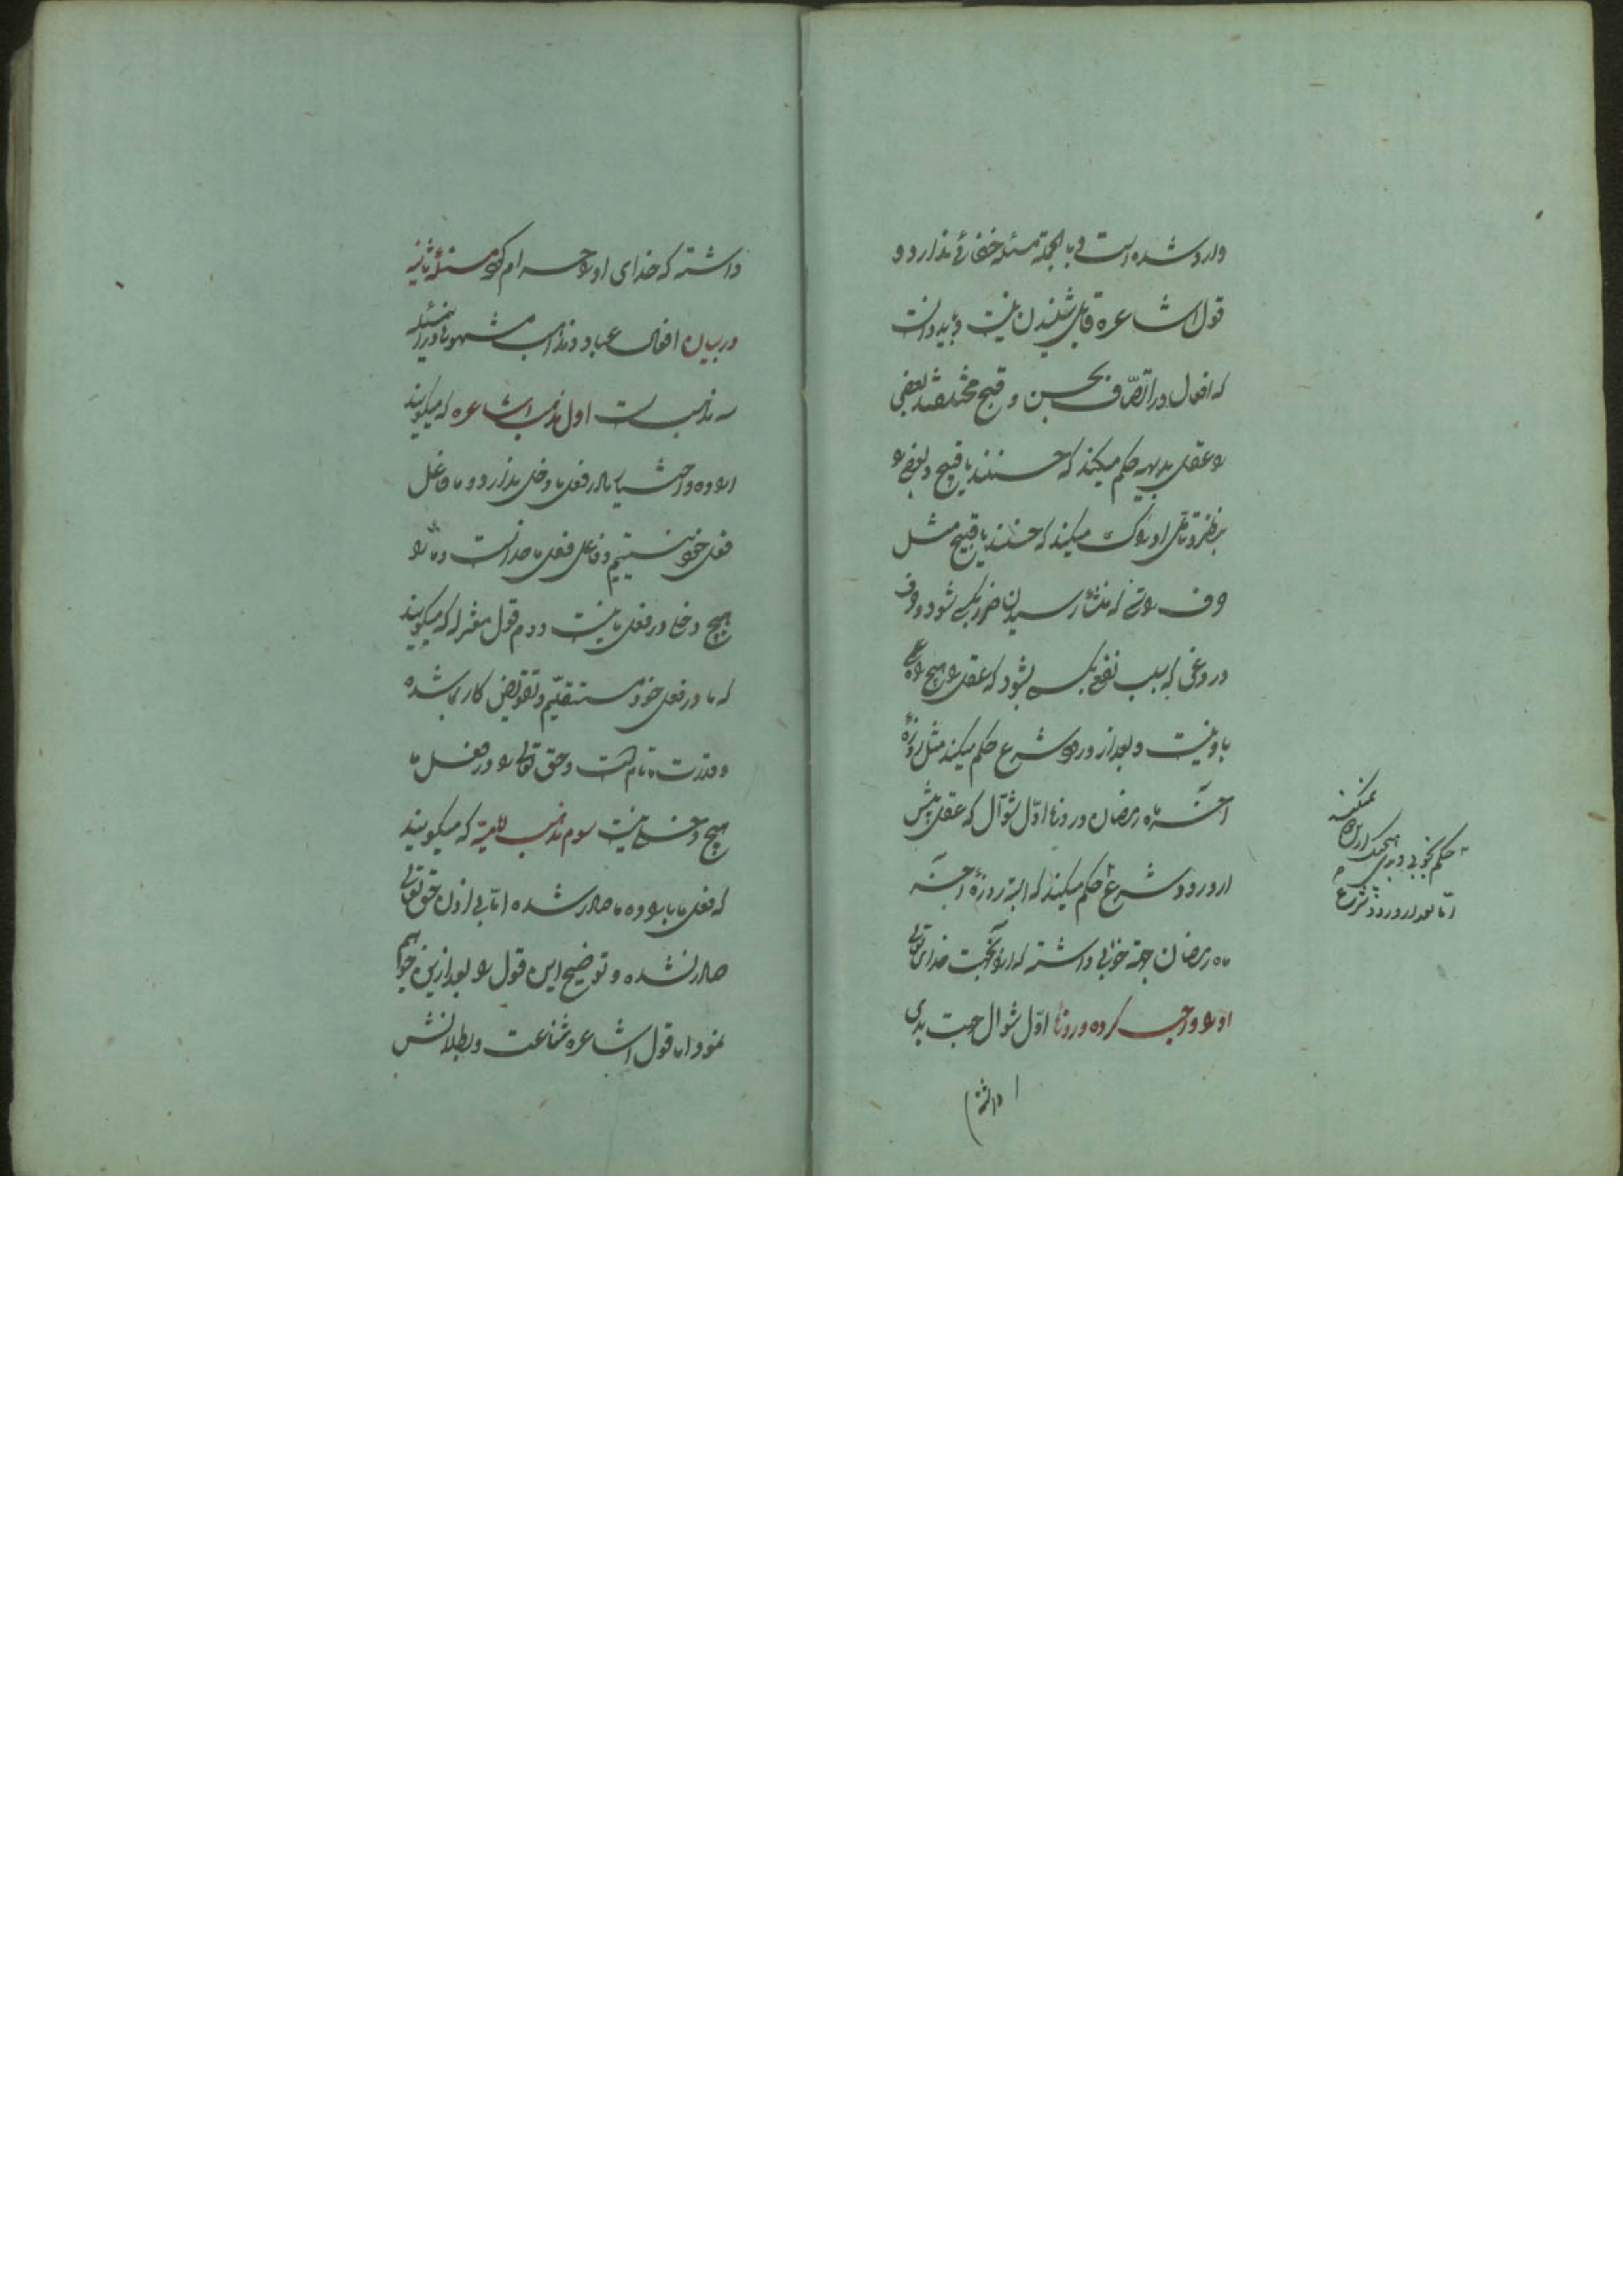 وارد شده است و بالجمله مسئله خفائی ندارد و
قول اشاعره قابل شنیدن نیست و باید دانست
که افعال در اتصاف بحسن و قبح مختلفند بعضی
را عقل بدیهه حکم میکند که حسنند یا قبیح و بعضی را
بنظر و تأمل ادراک میکند که حسنند یا قبیح مثل
راستی که منشأ رسیدن ضرر بکسی شود و
دروغی که سبب نفع بکسی شود که عقل را هیچ راهی
باو نیست و بعد از ورود شرع حکم میکند مثل روزهٔ
آخر ماه رمضان و روزهٔ اول شوال که عقل پیش
از ورود شرع حکم میکند که البته روزهٔ آخر
ماه رمضان جهة خوبی داشته که از آنجهت خدای تعالی
او را واجب کرده و روزهٔ اول شوال جهت بدی
داشته
حکم بخوبی و بدی هیچیک از این
نمیکند
اما بعد از ورود شرع
داشته که خدای او را حرام کرده مسئلهٔ ثانیه
در بیان افعال عباد و مذاهب مشهوره در این مسئله
سه مذهبست اول مذهب اشاعره که میگویند
اراده و اختیار ما در فعل ما دخلی ندارد و ما فاعل
فعل خود نیستیم و فاعل فعل ما خداست و ما را
هیچ دخلی در فعل ما نیست دوم قول معتزله که میگویند
که ما در فعل خود مستقلیم و تفویض کار بما شده
و قدرت ما تام است و حق تعالی را در فعل ما
هیچ دخلی نیست سوم مذهب امامیه که میگویند
که فعل ما باراده ما صادر شده اما بی اذن حق تعالی
صادر نشده و توضیح این قول را بعد از این خواهیم
نمود اما قول اشاعره شناعت و بطلانش